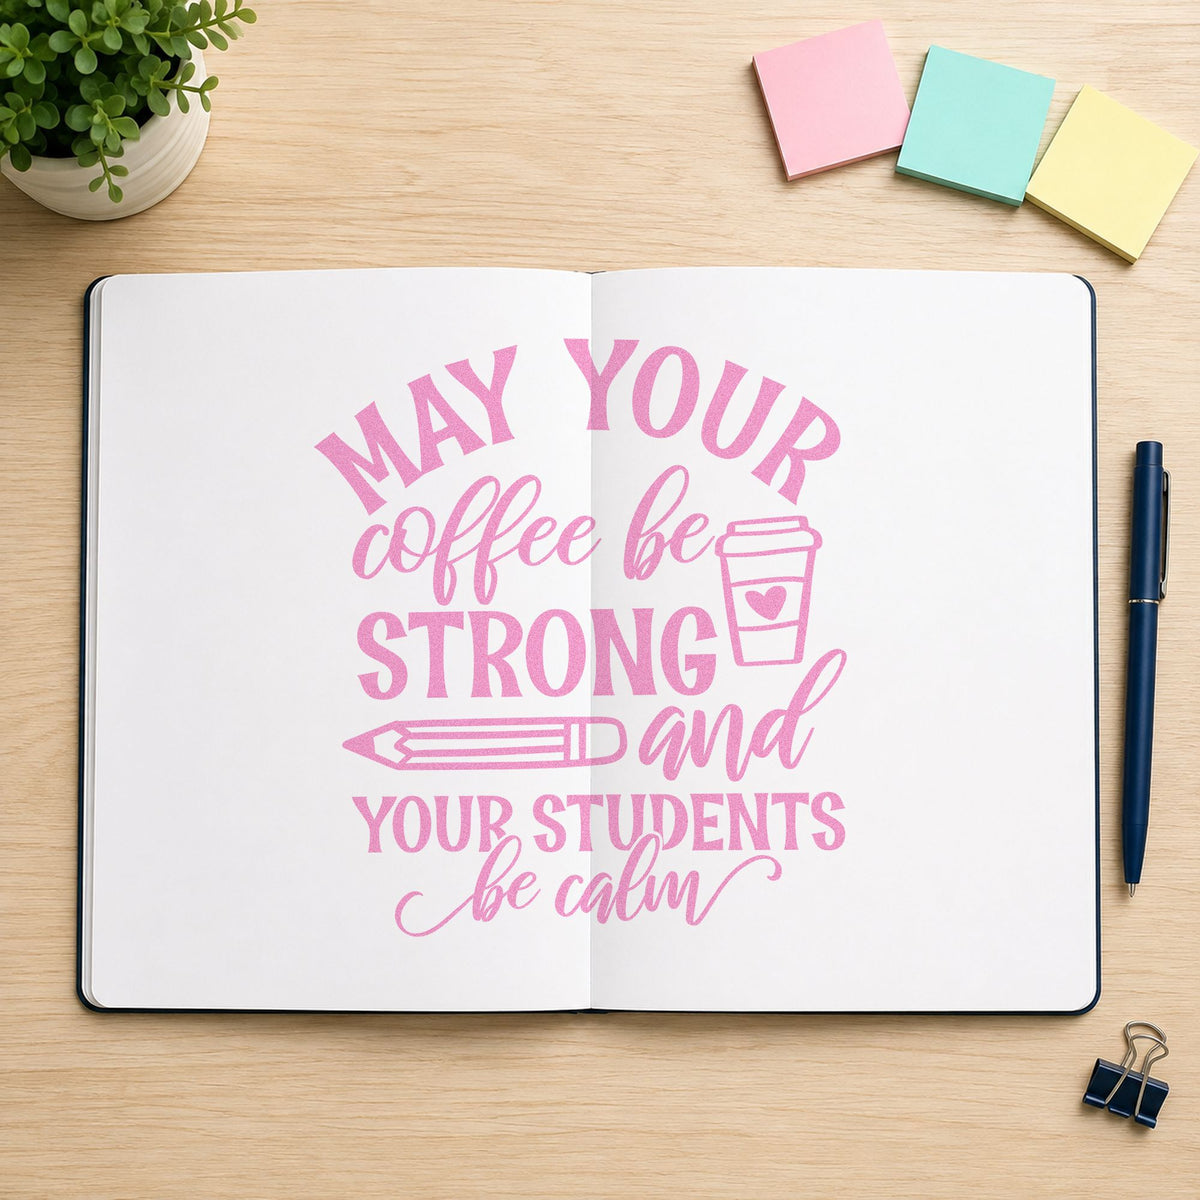 MAY YOUR
coffee be
STRONG
and
YOUR STUDENTS
be calm